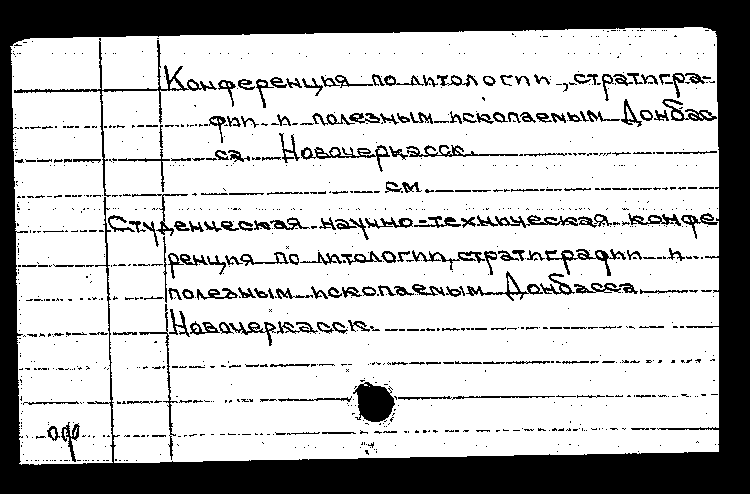 Конференция по литологии, стратигра-
фии и полезным ископаемым Донбас
са. Новочеркасск.
см.
Студенческая научно-техническая конфе
ренция по литологии, стратиграфии и
полезным ископаемым Донбасса.
Новочеркасск.